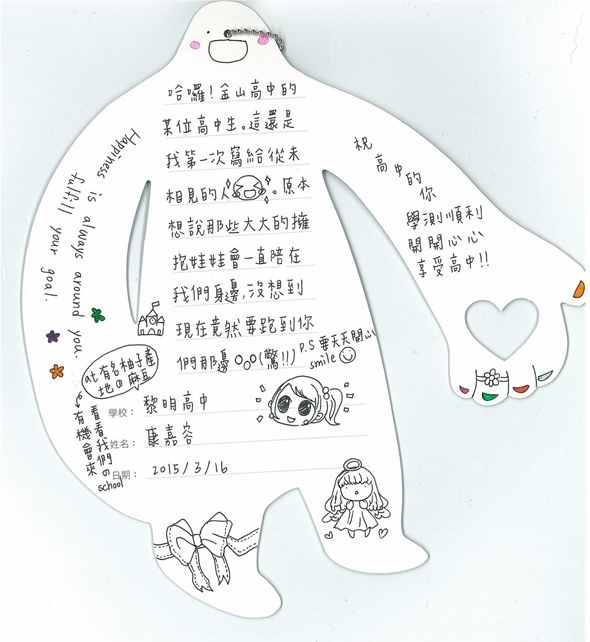 哈囉！金山高中的
某位高中生。這還是
我第一次寫給從未
相見的人。原本
想說那些大大的擁
抱娃娃會一直陪在
我們身邊,沒想到
現在竟然要跑到你
們那邊ooo(驚!!)
P.S 要天天開心
smile
學校：黎明高中
姓名：康嘉容
日期：2015/3/16
Happiness is always around you.
fulfill your goal.
at有名柚子產
地の麻豆
有機會來
看看我們の
school
祝
高中的
你
學測順利
開開心心
享受高中!!